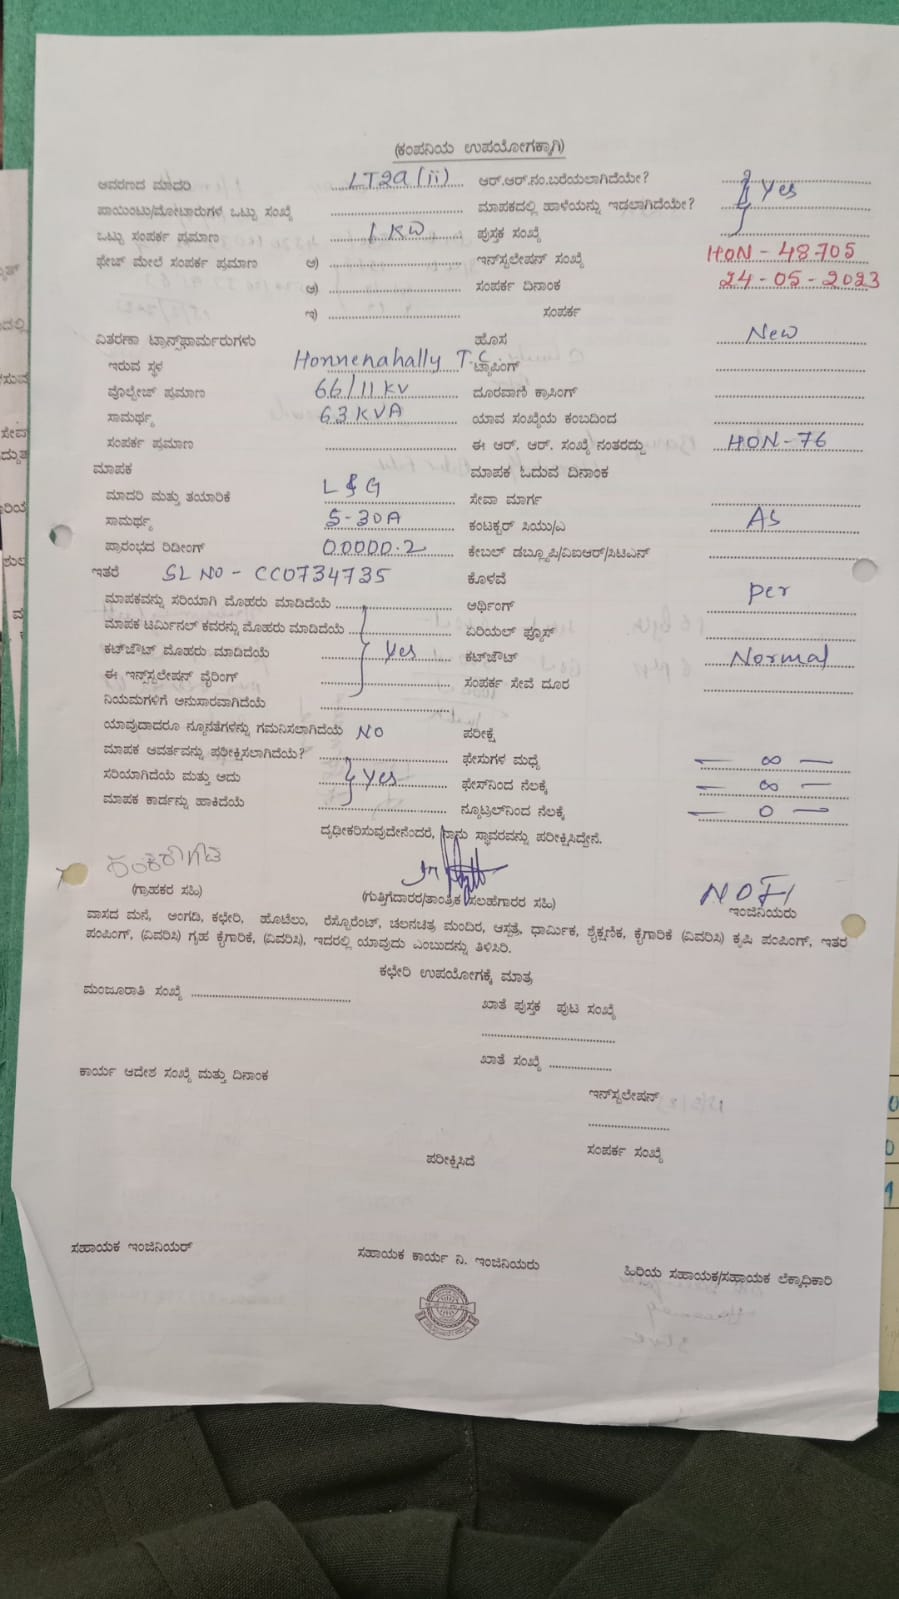 (ಕಂಪನಿಯ ಉಪಯೋಗಕ್ಕಾಗಿ)
ಆವರಣದ ಮಾದರಿ LT2a(ii) ಆರ್.ಆರ್.ನಂ.ಬರೆಯಲಾಗಿದೆಯೇ? Yes
ಪಾಯಿಂಟು/ಮೋಟಾರುಗಳ ಒಟ್ಟು ಸಂಖ್ಯೆ ಮಾಪಕದಲ್ಲಿ ಹಾಳೆಯನ್ನು ಇಡಲಾಗಿದೆಯೇ?
ಒಟ್ಟು ಸಂಪರ್ಕ ಪ್ರಮಾಣ 1 KW ಪುಸ್ತಕ ಸಂಖ್ಯೆ
ಫೇಜ್ ಮೇಲೆ ಸಂಪರ್ಕ ಪ್ರಮಾಣ ಅ) ಇನ್‌ಸ್ಟಲೇಷನ್ ಸಂಖ್ಯೆ HON - 48705
ಆ) ಸಂಪರ್ಕ ದಿನಾಂಕ 24-05-2023
ಇ) ಸಂಪರ್ಕ
ವಿತರಣಾ ಟ್ರಾನ್ಸ್‌ಫಾರ್ಮರುಗಳು ಹೊಸ New
ಇರುವ ಸ್ಥಳ Honnenahally T.C ಟ್ಯಾಪಿಂಗ್
ವೊಲ್ಟೇಜ್ ಪ್ರಮಾಣ 66/11 KV ದೂರವಾಣಿ ಕ್ರಾಸಿಂಗ್
ಸಾಮರ್ಥ್ಯ 63 KVA ಯಾವ ಸಂಖ್ಯೆಯ ಕಂಬದಿಂದ
ಸಂಪರ್ಕ ಪ್ರಮಾಣ ಈ ಆರ್. ಆರ್. ಸಂಖ್ಯೆ ನಂತರದ್ದು HON-76
ಮಾಪಕ ಮಾಪಕ ಓದುವ ದಿನಾಂಕ
ಮಾದರಿ ಮತ್ತು ತಯಾರಿಕೆ L & G ಸೇವಾ ಮಾರ್ಗ
ಸಾಮರ್ಥ್ಯ 5-30A ಕಂಟಕ್ಟರ್ ಸಿಯು/ಎ AS
ಪ್ರಾರಂಭದ ರಿಡೀಂಗ್ 00000.2 ಕೇಬಲ್ ಡಬ್ಲ್ಯೂಪಿ/ವಿಐಆರ್/ಸಿಟಿಎಸ್
ಇತರೆ SL NO - CC0734735 ಕೊಳವೆ
ಮಾಪಕವನ್ನು ಸರಿಯಾಗಿ ಮೊಹರು ಮಾಡಿದೆಯೆ ಅರ್ಥಿಂಗ್ per
ಮಾಪಕ ಟರ್ಮಿನಲ್ ಕವರನ್ನು ಮೊಹರು ಮಾಡಿದೆಯೆ ಏರಿಯಲ್ ಫ್ಯೂಸ್
ಕಟ್‌ಔಟ್ ಮೊಹರು ಮಾಡಿದೆಯೆ Yes ಕಟ್‌ಔಟ್ Normal
ಈ ಇನ್ಸ್‌ಟಲೇಷನ್ ವೈರಿಂಗ್ ಸಂಪರ್ಕ ಸೇವೆ ದೂರ
ನಿಯಮಗಳಿಗೆ ಅನುಸಾರವಾಗಿದೆಯೆ
ಯಾವುದಾದರೂ ನ್ಯೂನತೆಗಳನ್ನು ಗಮನಿಸಲಾಗಿದೆಯೆ NO ಪರೀಕ್ಷೆ
ಮಾಪಕ ಆವರ್ತವನ್ನು ಪರೀಕ್ಷಿಸಲಾಗಿದೆಯೆ? ಫೇಸುಗಳ ಮಧ್ಯೆ — ∞ —
ಸರಿಯಾಗಿದೆಯೆ ಮತ್ತು ಅದು Yes ಫೇಸ್‌ನಿಂದ ನೆಲಕ್ಕೆ — ∞ —
ಮಾಪಕ ಕಾರ್ಡನ್ನು ಹಾಕಿದೆಯೆ ನ್ಯೂಟ್ರಲ್‌ನಿಂದ ನೆಲಕ್ಕೆ — 0 —
ದೃಢೀಕರಿಸುವುದೇನೆಂದರೆ, ನಾನು ಸ್ಥಾವರವನ್ನು ಪರೀಕ್ಷಿಸಿದ್ದೇನೆ.
(ಗ್ರಾಹಕರ ಸಹಿ) (ಗುತ್ತಿಗೆದಾರರ/ತಾಂತ್ರಿಕ ಸಲಹೆಗಾರರ ಸಹಿ) ಇಂಜಿನಿಯರು
ವಾಸದ ಮನೆ, ಅಂಗಡಿ, ಕಛೇರಿ, ಹೊಟೆಲು, ರೆಸ್ಟೊರೆಂಟ್, ಚಲನಚಿತ್ರ ಮಂದಿರ, ಆಸ್ಪತ್ರೆ, ಧಾರ್ಮಿಕ, ಶೈಕ್ಷಣಿಕ, ಕೈಗಾರಿಕೆ (ವಿವರಿಸಿ) ಕೃಷಿ ಪಂಪಿಂಗ್, ಇತರ
ಪಂಪಿಂಗ್, (ವಿವರಿಸಿ) ಗೃಹ ಕೈಗಾರಿಕೆ, (ವಿವರಿಸಿ), ಇದರಲ್ಲಿ ಯಾವುದು ಎಂಬುದನ್ನು ತಿಳಿಸಿರಿ.
ಕಛೇರಿ ಉಪಯೋಗಕ್ಕೆ ಮಾತ್ರ
ಮಂಜೂರಾತಿ ಸಂಖ್ಯೆ ಖಾತೆ ಪುಸ್ತಕ ಪುಟ ಸಂಖ್ಯೆ
ಖಾತೆ ಸಂಖ್ಯೆ
ಕಾರ್ಯ ಆದೇಶ ಸಂಖ್ಯೆ ಮತ್ತು ದಿನಾಂಕ
ಇನ್‌ಸ್ಟಲೇಷನ್
ಸಂಪರ್ಕ ಸಂಖ್ಯೆ
ಪರೀಕ್ಷಿಸಿದೆ
ಸಹಾಯಕ ಇಂಜಿನಿಯರ್ ಸಹಾಯಕ ಕಾರ್ಯ ನಿ. ಇಂಜಿನಿಯರು ಹಿರಿಯ ಸಹಾಯಕ/ಸಹಾಯಕ ಲೆಕ್ಕಾಧಿಕಾರಿ